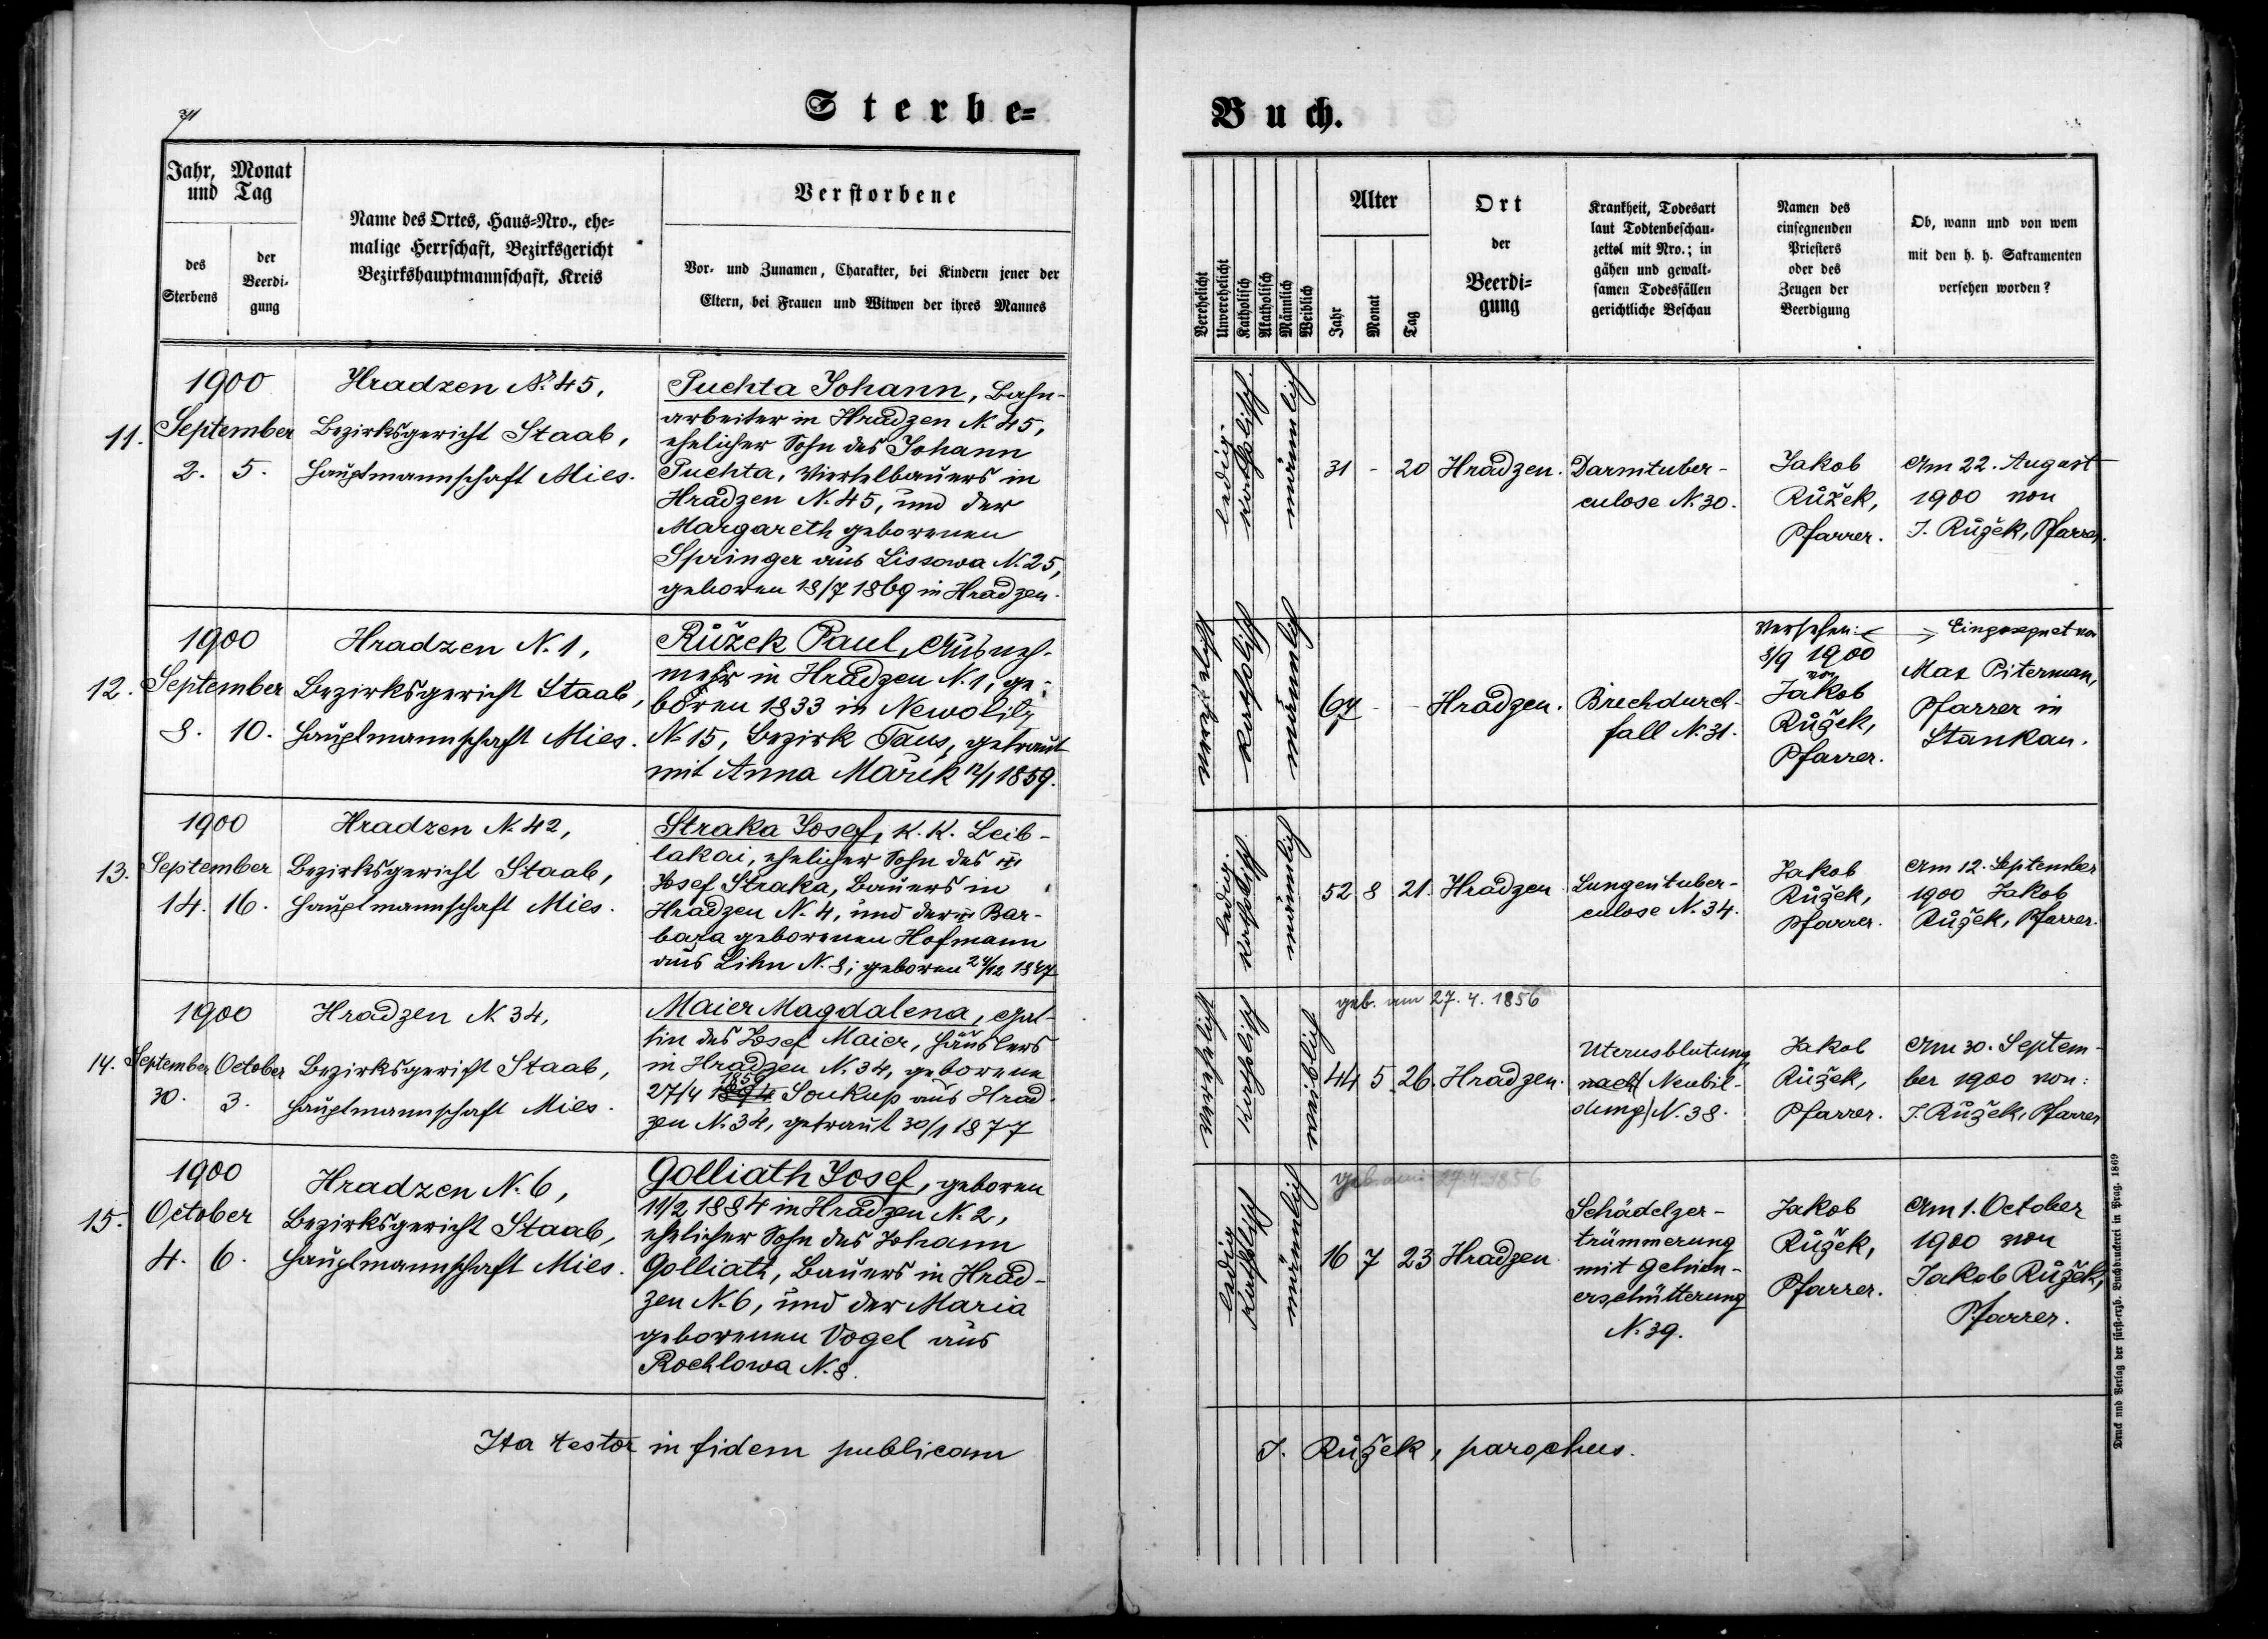 Sterbe=
Buch.
Jahr, Monat
und Tag
des
Sterbens
der
Beerdi-
gung
Name des Ortes, Haus=Nro., ehe=
malige Herrschaft, Bezirksgericht
Bezirkshauptmannschaft, Kreis
Verstorbene
Vor- und Zunamen, Charakter, bei Kindern jener der
Eltern, bei Frauen und Witwen der ihres Mannes
Verehelicht
Unverehelicht
Katholisch
Akatholisch
Männlich
Weiblich
Alter
Jahr
Monat
Tag
Ort
der
Beerdi=
gung
Krankheit, Todesart
laut Todtenbeschau-
zettel mit Nro.; in
gähen und gewalt-
samen Todesfällen
gerichtliche Beschau
Namen des
einsegnenden
Priesters
oder des
Zeugen der
Beerdigung
Ob, wann und von wem
mit den h. h. Sakramenten
versehen worden?
11.
1900
September
2. 5.
Hradzen N. 45,
Bezirksgericht Staab,
Hauptmannschaft Mies.
Puchta Johann, Bahn-
arbeiter in Hradzen N. 45,
ehelicher Sohn des Johann
Puchta, Viertelbauers in
Hradzen N. 45, und der
Margareth geborenen
Springer aus Lissowa N. 25,
geboren 13/7 1869 in Hradzen.
ledig
katholisch.
männlich
31 - 20
Hradzen.
Darmtuber-
culose N. 30.
Jakob
Růžek,
Pfarrer.
Am 22. August
1900 von
J. Růžek, Pfarrer.
12.
1900
September
8. 10.
Hradzen N. 1,
Bezirksgericht Staab,
Hauptmannschaft Mies.
Růžek Paul, Ausneh-
mer in Hradzen N. 1, ge-
boren 1833 in Newolitz
N. 15, Bezirk Taus, getraut
mit Anna Mařík 12/1 1859.
verehelicht
katholisch
männlich
67 - -
Hradzen.
Brechdurch-
fall N. 31.
Versehen:
8/9 1900
von
Jakob
Růžek,
Pfarrer.
Eingesegnet von
Max Piterman,
Pfarrer in
Stankau.
13.
1900
September
14. 16.
Hradzen N. 42,
Bezirksgericht Staab,
Hauptmannschaft Mies.
Straka Josef, K. K. Leib-
lakai, ehelicher Sohn des
Josef Straka, Bauers in
Hradzen N. 4, und der Bar-
bara geborenen Hofmann
aus Lihn N. 8; geboren 24/12 1847
ledig
katholisch
männlich
52 8 21.
Hradzen
Lungentuber-
culose N. 34.
Jakob
Růžek,
Pfarrer.
Am 12. September
1900 Jakob
Růžek, Pfarrer.
14.
1900
September October
30. 3.
Hradzen N. 34,
Bezirksgericht Staab,
Hauptmannschaft Mies.
Maier Magdalena, Gat-
tin des Josef Maier, Häuslers
in Hradzen N. 34, geborene
27/4 Soukup aus Hrad-
zen N. 34, getraut 30/1 1877
verehelicht
katholisch
weiblich
geb. am 27. 4. 1856
44 5 26.
Hradzen.
Uterusblutung
nach (Neubil-
dung) N. 38.
Jakob
Růžek,
Pfarrer.
Am 30. Septem-
ber 1900 von:
J. Růžek, Pfarrer
15.
1900
October
4. 6.
Hradzen N. 6,
Bezirksgericht Staab,
Hauptmannschaft Mies.
Golliath Josef, geboren
11/2 1884 in Hradzen N. 2,
ehelicher Sohn des Johann
Golliath, Bauers in Hrad-
zen N. 6, und der Maria
geborenen Vogel aus
Rochlowa N. 8.
ledig
katholisch
männlich
geb. am 27. 4. 1856
16 7 23
Hradzen
Schädelzer-
trümmerung
mit Gehirn-
erschütterung
N. 39.
Jakob
Růžek,
Pfarrer.
Am 1. October
1900 von
Jakob Růžek,
Pfarrer.
Ita testor in fidem publicam
J. Růžek, parochus.
Druck und Verlag der fürst-erzb. Buchdruckerei in Prag. 1869